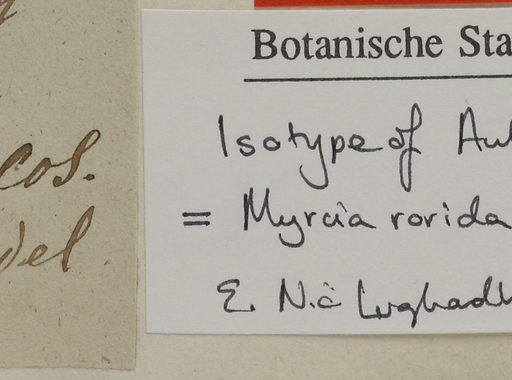 cos.
del
Botanische Sta
Isotype of Aul
= Myrcia rorida
E. Nic Lughadh